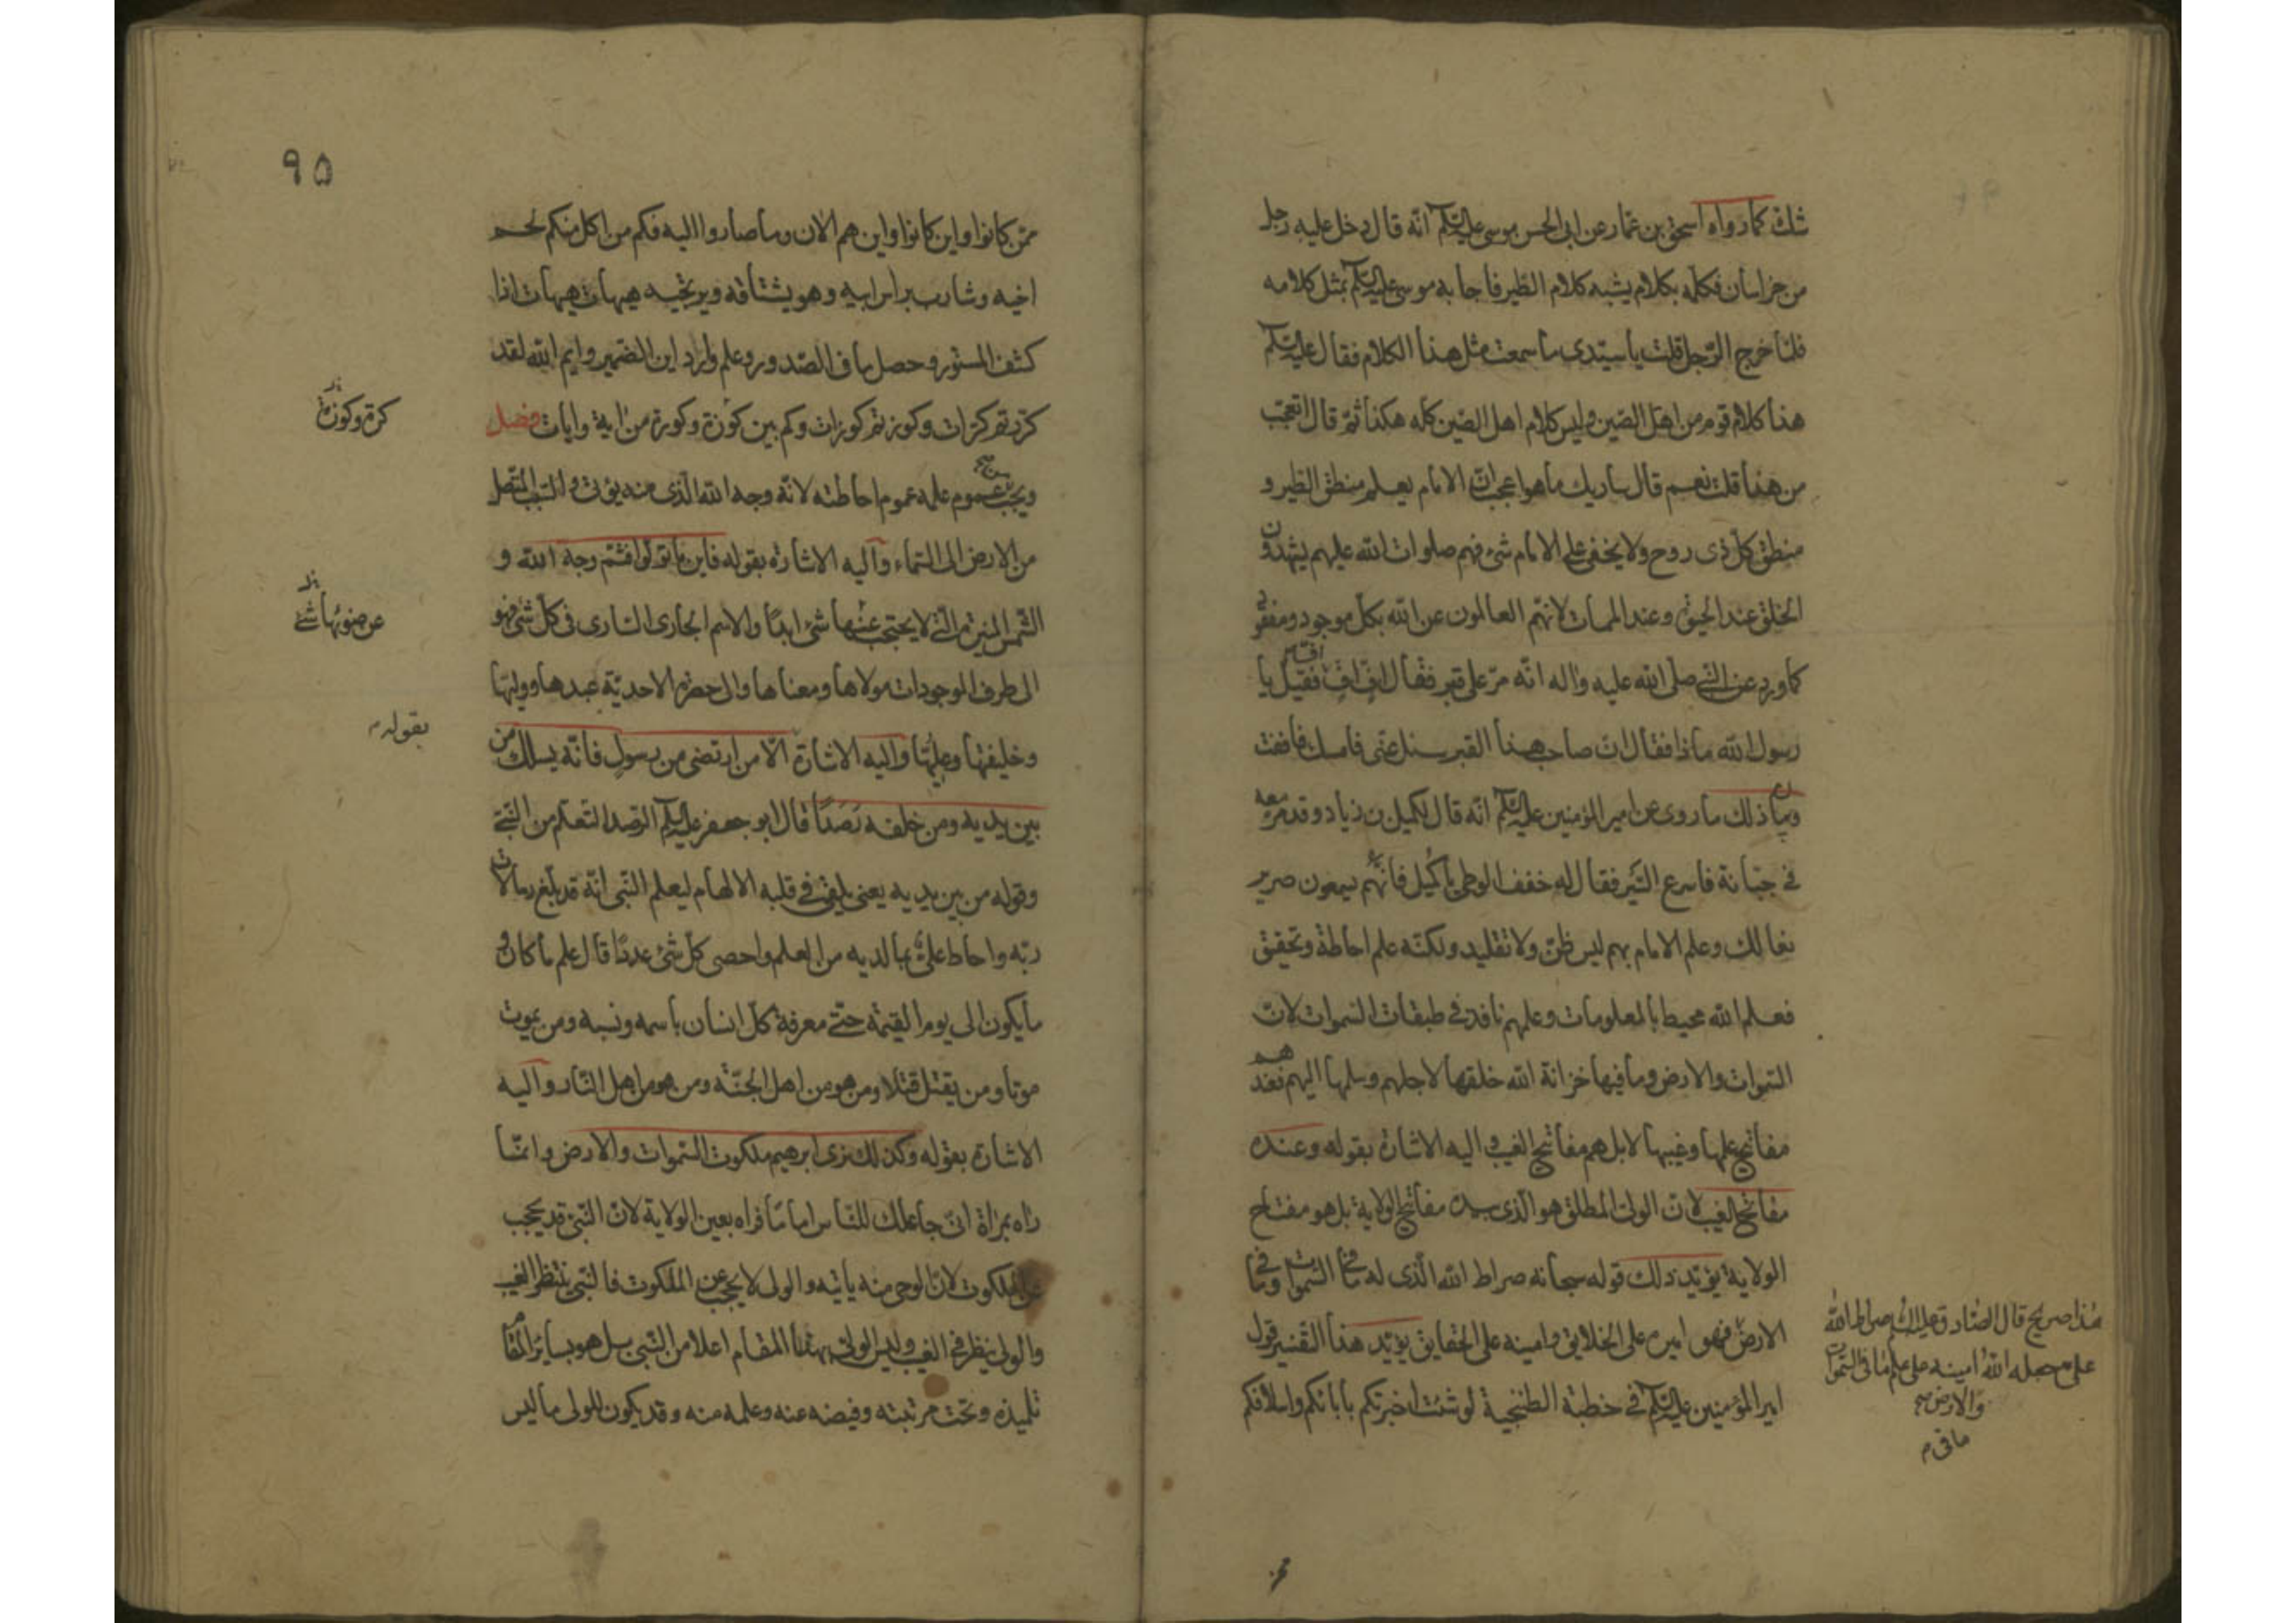 ذلك كما رواه اسحق بن عمار عن ابى الحسن موسى عليه السلم انه قال دخل عليه رجل
من خراسان فكلمه بكلام يشبه كلام الطير فاجابه موسى عليه السلم بمثل كلامه
فلما خرج الرجل قلت يا سيدى ما سمعت مثل هذا الكلام فقال عليه السلم
هذا كلام قوم من اهل الصين وليس كلام اهل الصين كله هكذا ثم قال اتعجب
من هذا قلت نعم قال ساريك ما هو اعجب ان الامام يعلم منطق الطير و
منطق كل ذى روح ولا يخفى على الامام شئ فهم صلوات الله عليهم يشهدون
الخلق عند الحيوة وعند الممات لانهم العالمون عن الله بكل موجود ومفقود
كما ورد عن النبى صلى الله عليه واله انه مر على قبر فقال اف اف فقيل يا
رسول الله ماذا فقال ان صاحب هذا القبر سئل عنى فامسك فاففت
ومن ذلك ما روى عن امير المؤمنين عليه السلم انه قال لكميل بن زياد وقد مر معه
فى جبانة فاسرع السير فقال له خفف الوطى يا كميل فانهم يسمعون صرير
نعالك وعلم الامام بهم ليس ظن ولا تقليد ولكنه علم احاطة وتحقيق
فعلم الله محيط بالمعلومات وعلمهم نافذ فى طبقات السموات لان
السموات والارض وما فيها خزانة الله خلقها لاجلهم وسلمها اليهم فعندهم
مفاتح علمها وغيبها لا بل هم مفاتح الغيب واليه الاشارة بقوله وعنده
مفاتح الغيب لان الولى المطلق هو الذى بيده مفاتح الولاية بل هو مفتاح
الولاية يؤيد ذلك قوله سبحانه صراط الله الذى له ما فى السموات وما فى
الارض فهو امينه على الخلايق وامينه على الحقايق يؤيد هذا التفسير قول
امير المؤمنين عليه السلم فى خطبة الطتنجية لو شئت اخبرتكم بابائكم واسلافكم
هذا صريح قال الصادق عليه السلم صراط الله
على جعله الله امينه على علم ما فى السموات
والارض صح
ما فى م
٩٥
ممن كانوا واين كانوا واين هم الان وما صاروا اليه فكم من اكل منكم لحم
اخيه وشارب براس ابيه وهو يشتاقه ويرتجيه هيهات هيهات اذا
كشف المستور وحصل ما فى الصدور وعلم وارد اين الضمير وايم الله لقد
كررتم كرات وكوزتم كوزات وكم بين كوزة وكورة من اية وايات فصل
ويجب من عموم علمه عموم احاطته لانه وجه الله الذى منه يؤتى والسبب المتصل
من الارض الى السماء واليه الاشارة بقوله فاينما تولوا فثم وجه الله و
الشمس المنيرة التى لا يحتجب عنها شئ ابدا والاسم الجارى السارى فى كل شئ فهو
الى طرف الموجودات مولاها ومعناها والى حضرة الاحدية عبدها ووليها
وخليفتها وعليها واليه الاشارة الا من ارتضى من رسول فانه يسلك من
بين يديه ومن خلفه رصدا قال ابو جعفر عليه السلم الرصد التعلم من النبى
وقوله من بين يديه يعنى يلقى فى قلبه الالهام ليعلم النبى انه قد بلغ رسالات
ربه واحاط على بما لديه من العلم واحصى كل شئ عددا قال علم ما كان و
ما يكون الى يوم القيمة حتى معرفة كل انسان باسمه ونسبه ومن يموت
موتا ومن يقتل قتلا ومن هو من اهل الجنة ومن هو من اهل النار واليه
الاشارة بقوله وكذلك نرى ابرهيم ملكوت السموات والارض وانما
راه بمراة انى جاعلك للناس اماما فراه بعين الولاية لان النبى قد يحجب
عن الملكوت لان الوحى منه ياتيه والولى لا يحجب عن الملكوت فالنبى ينتظر الغيب
والولى ينظر فى الغيب وليس الولى بهذا المقام اعلا من النبى بل هو بسائر المقام
تلميذه وتحت مرتبته وفيضه عنه وعلمه منه وقد يكون للولى ما ليس
كرة وكوزة
عن ضوئها شئ
بقوله م